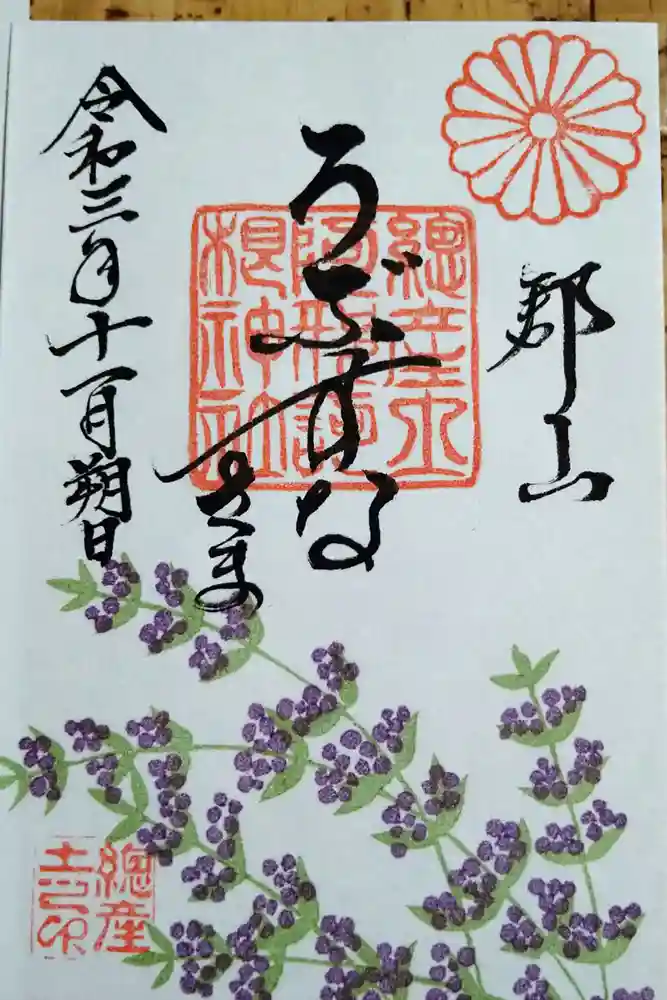 郡山
總産土
阿邪訶
根神社
うぶすな
さま
令和三年十一月朔日
總産
土之印